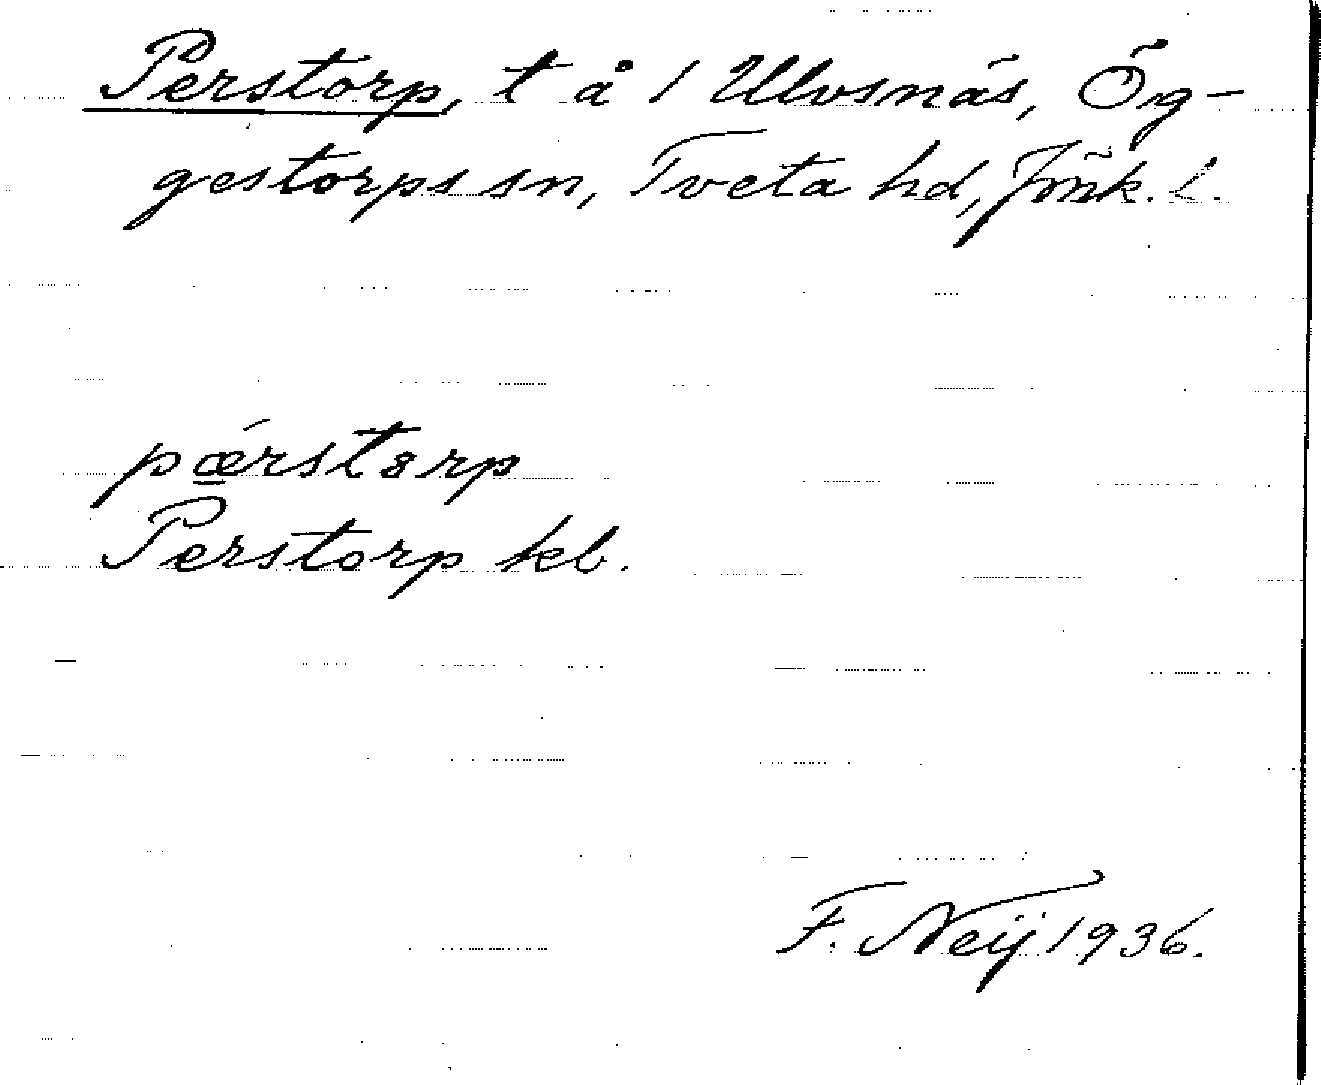 Perstorp, t å 1 Ulvsnäs, Ög-
gestorps sn, Tveta hd, Jönk. l.
pǽrstɔrp
Perstorp kb.
F. Neij 1936.